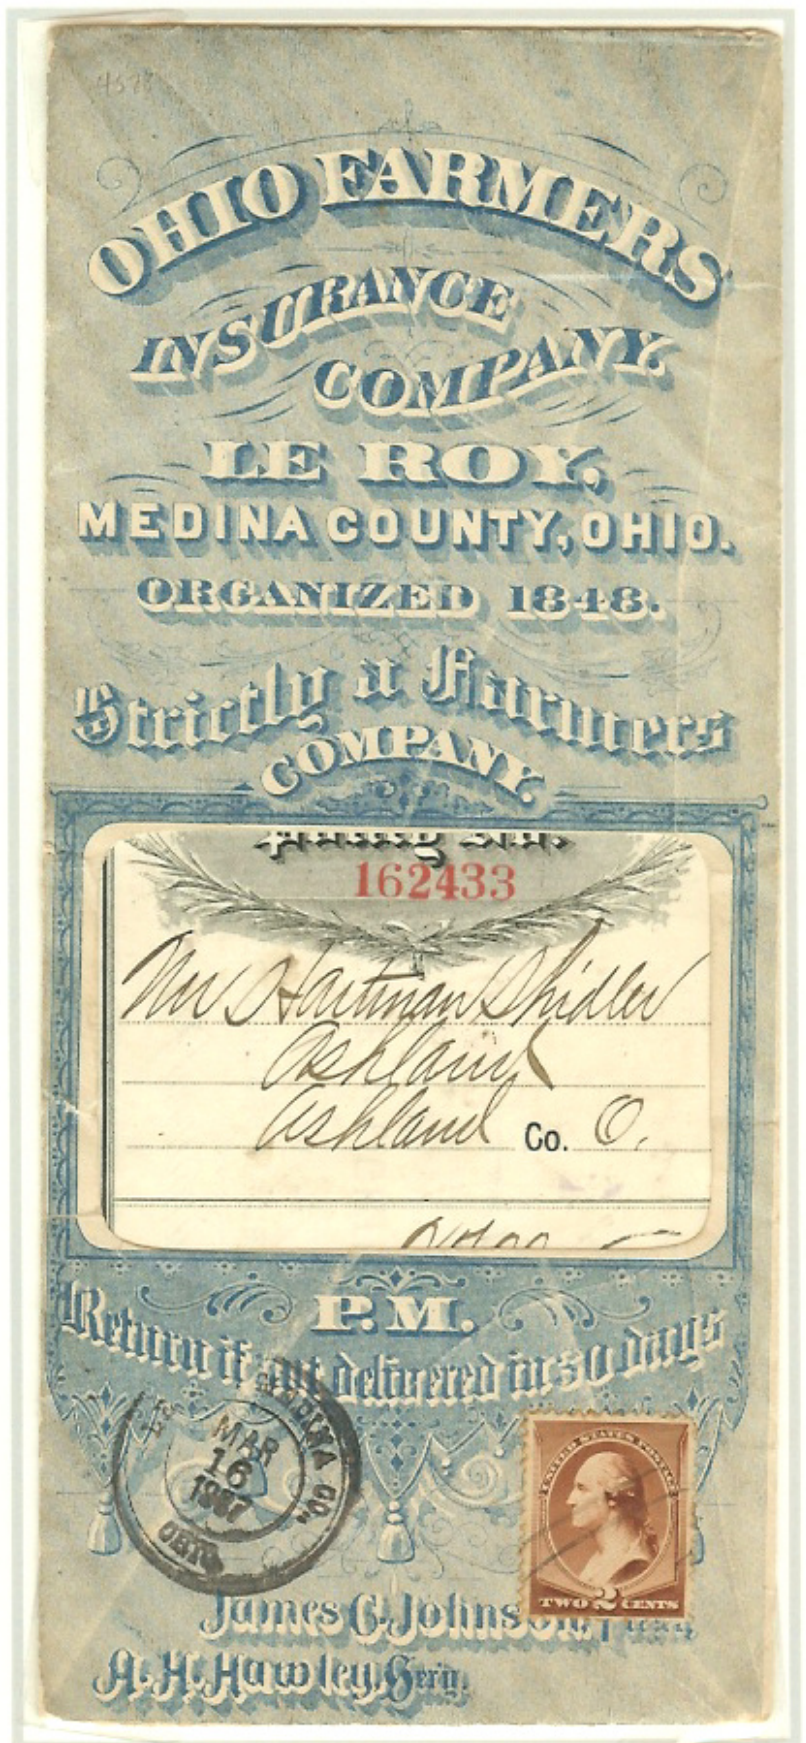 4578
OHIO FARMERS
INSURANCE
COMPANY.
LE ROY,
MEDINA COUNTY, OHIO.
ORGANIZED 1848.
Strictly a Farmers
COMPANY.
Policy No.
162433
Mr Hartman Shidler
Ashland
Ashland Co. O.
P.M.
Return if not delivered in 30 days
MEDINA CO.,
MAR
16
1887
OHIO
UNITED STATES POSTAGE
TWO 2 CENTS
James C. Johnson,
A. H. Hawley, Secy.